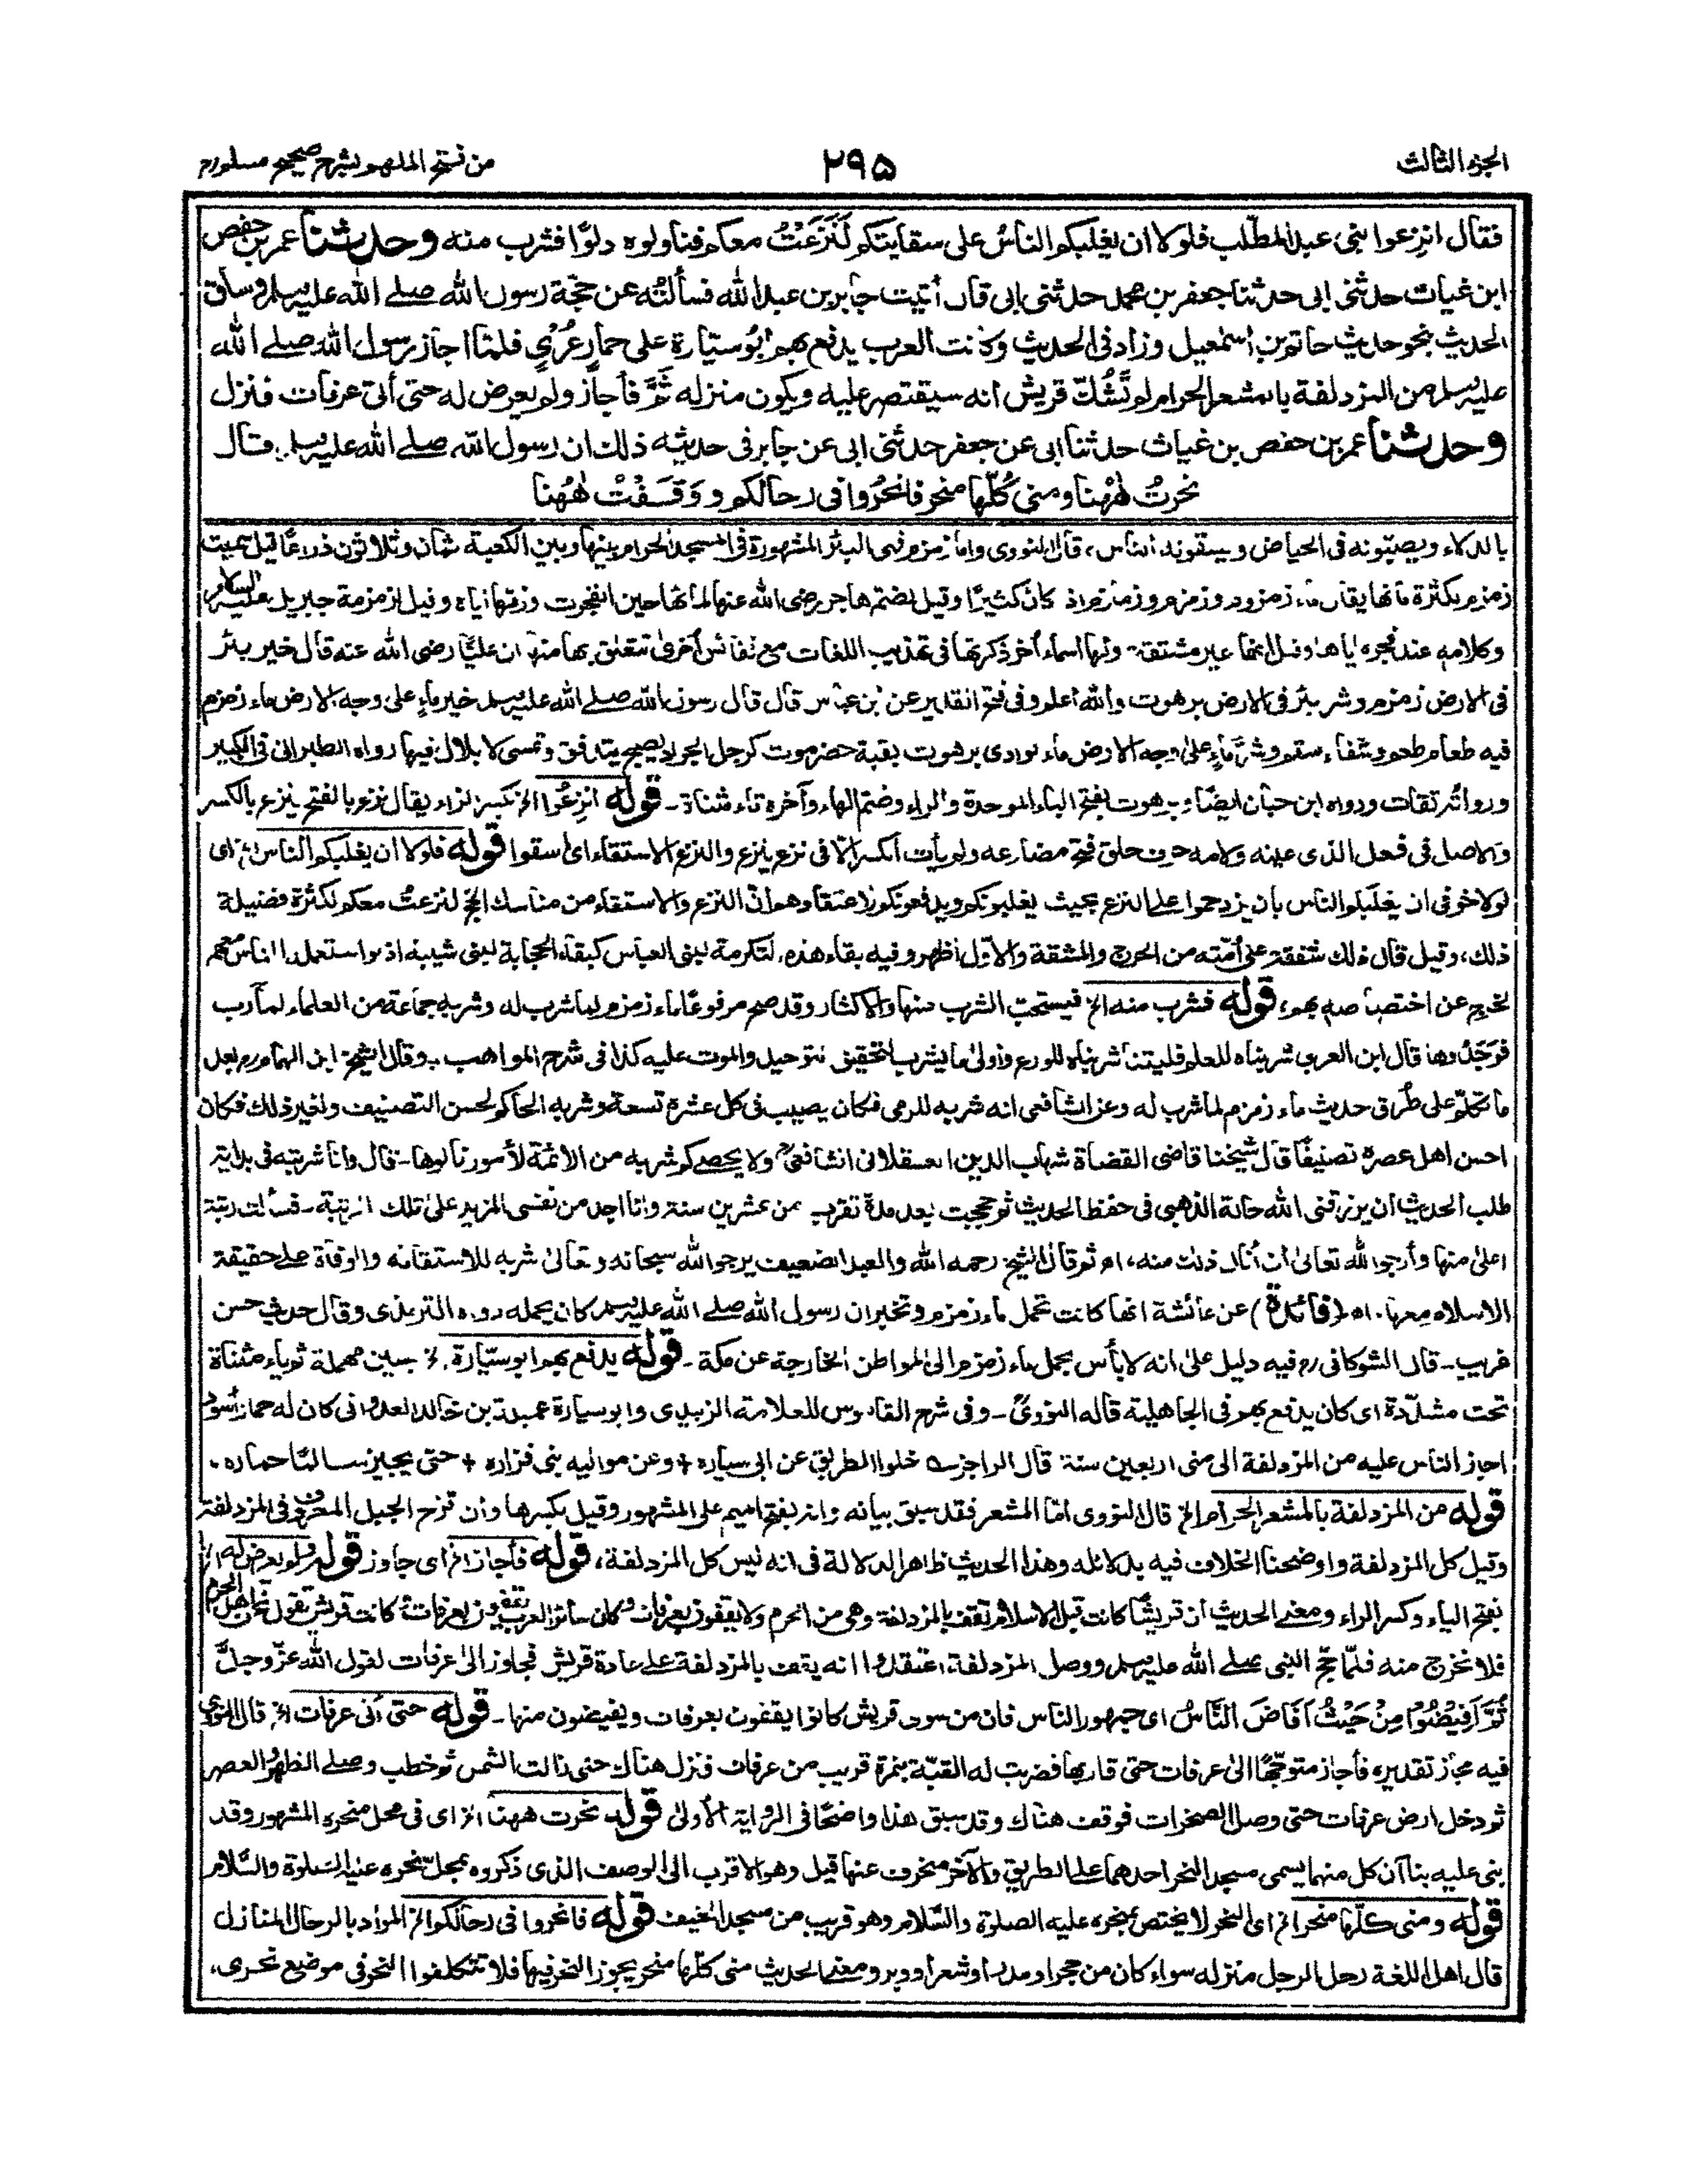 الجزء الثالث
٢٩٥
من فتح الملهم بشرح صحيح مسلم
فقال انزعوا بنى عبد المطلب فلولا ان يغلبكم الناس على سقايتكم لَنَزَعْتُ معكم فناولوه دلوًا فشرب منه وحدثنا عمر بن حفص
ابن غياث حدثنى ابى حدثنا جعفر بن محمد حدثنى ابى قال أتيت جابر بن عبد الله فسألتُه عن حجّة رسول الله صلى الله عليه وسلم وساق
الحديث بنحو حديث حاتم بن اسمعيل وزاد فى الحديث وكانت العرب يدفع بهم ابُو سيّارة على حمارٍ عُرْيٍ فلمّا اجاز رسول الله صلى الله
عليه وسلم من المزدلفة بالمشعر الحرام لم تَشُكّ قريش انه سيقتصر عليه ويكون منزله ثَمَّ فأجاز ولم يعرض له حتى أتى عرفات فنزل
وحدثنا عمر بن حفص بن غياث حدثنا ابى عن جعفر حدثنى ابى عن جابر فى حديثه ذلك ان رسول الله صلى الله عليه وسلم قال
نحرتُ هٰهُنا ومنى كُلّها منحر فانحرُوا فى رحالكم ووَقَفْتُ هٰهُنا
بالدلاء ويصبّونه فى الحياض ويسقونه الناس، قال النووى واما زمزم فهى البئر المشهورة فى المسجد الحرام بينها وبين الكعبة ثمان وثلاثون ذراعًا قيل سميت
زمزم بكثرة مائها يقال ماء زمزوم وزمزم وزمازم اذا كان كثيرًا وقيل لضم هاجر رضى الله عنها لمائها حين انفجرت وزمّها اياه وقيل لزمزمة جبريل عليه السلام
وكلامه عند فجره اياها وقيل انها غير مشتقة ولها اسماء أخر ذكرتها فى تهذيب اللغات مع نفائس أخرى تتعلق بها منها ان عليًّا رضى الله عنه قال خير بئر
فى الارض زمزم وشر بئر فى الارض برهوت والله أعلم وفى فتح القدير عن ابن عباس قال قال رسول الله صلى الله عليه وسلم خير ماءٍ على وجه الارض ماء زمزم
فيه طعام طعم وشفاء سقم وشرّ ماءٍ على وجه الارض ماء بوادى برهوت بقبة حضرموت كرجل الجراد يصبح يتدفق وتمسى لا بلال فيها رواه الطبرانى فى الكبير
ورواته ثقات ورواه ابن حبان ايضًا وبرهوت بفتح الباء الموحدة والراء وضم الهاء وآخره تاء مثناة ـ قوله انزِعُوا الخ بكسر الزاء يقال نزع بالفتح ينزع بالكسر
والاصل فى فعل الذى عينه ولامه حرف حلق فتح مضارعه ولم يأت الكسر الّا فى نزع ينزع والنزع الاستقاء اى اسقوا قوله فلولا ان يغلبكم الناس الخ اى
لولا خوفى ان يغلبكم الناس بأن يزدحموا على النزع بحيث يغلبونكم ويدفعونكم لاعتقادهم ان النزع والاستقاء من مناسك الحج لنزعتُ معكم لكثرة فضيلة
ذلك، وقيل قال ذلك شفقة على أمّته من الحرج والمشقة والاوّل أظهر وفيه بقاء هذه التكرمة لبنى العباس كبقاء الحجابة لبنى شيبة اذ لو استعمل الناس معهم
لخرج عن اختصاصه بهم، قوله فشرب منه الخ فيستحب الشرب منها والاكثار وقد صح مرفوعًا ماء زمزم لما شرب له وشربه جماعة من العلماء لمآرب
فوَجَدُوها قال ابن العربى شربناه للعلم فليتنا شربناه للورع واولى ما يشرب لتحقيق التوحيد والموت عليه كذا فى شرح المواهب ـ وقال الشيخ ابن الهمام رح بعد
ما تكلّم على طُرق حديث ماء زمزم لما شرب له وعن الشافعى انه شربه للرمى فكان يصيب فى كل عشرة تسعة وشربه الحاكم لحسن التصنيف ولغير ذلك فكان
احسن اهل عصره تصنيفًا قال شيخنا قاضى القضاة شهاب الدين العسقلانى الشافعى رح ولا يحصى كم شربه من الائمة لأمور نالوها ـ قال وانا شربته فى بداية
طلب الحديث أن يرزقنى الله حالة الذهبى فى حفظ الحديث ثم حججت بعد مدة تقرب من عشرين سنة وانا اجد من نفسى المزيد على تلك الرتبة ـ فسألت رتبة
اعلى منها وأرجو الله تعالى أن أنال ذلك منه، اه ثم قال الشيخ رحمه الله والعبد الضعيف يرجو الله سبحانه وتعالى شربه للاستقامة والوفاة على حقيقة
الاسلام معها. اه (فائدة) عن عائشة انها كانت تحمل ماء زمزم وتخبر ان رسول الله صلى الله عليه وسلم كان يحمله رواه الترمذى وقال حديث حسن
غريب ـ قال الشوكانى رح فيه دليل على انه لا بأس بحمل ماء زمزم الى المواطن الخارجة عن مكة ـ قوله يدفع بهم ابو سيّارة الخ بسين مهملة ثم ياء مثناة
تحت مشدّدة اى كان يدفع بهم فى الجاهلية قاله النووىّ ـ وفى شرح القاموس للعلامة الزبيدى وابو سيارة عميلة بن خالد العدوانى كان له حمار أسود
اجاز الناس عليه من المزدلفة الى منى اربعين سنة قال الراجز ـ خلوا الطريق عن ابى سياره + وعن مواليه بنى فزاره + حتى يجيز سالمًا حماره ـ
قوله من المزدلفة بالمشعر الحرام الخ قال النووى امّا المشعر فقد سبق بيانه وانه بفتح الميم على المشهور وقيل بكسرها وأن قزح الجبل المعروف فى المزدلفة
وقيل كل المزدلفة واوضحنا الخلاف فيه بدلائله وهذا الحديث ظاهر الدلالة فى انه ليس كل المزدلفة، قوله فأجاز الخ اى جاوز قوله ولم يعرض له الخ
بفتح الياء وكسر الراء ومعنى الحديث أن قريشًا كانت قبل الاسلام تقف بالمزدلفة وهى من الحرم ولا يقفون بعرفات وكان سائر العرب يقفون بعرفات وكانت قريش تقول نحن اهل الحرم
فلا نخرج منه فلمّا حجّ النبى صلى الله عليه وسلم ووصل المزدلفة، اعتقدوا انه يقف بالمزدلفة على عادة قريش فجاوز الى عرفات لقول الله عزّ وجلّ
ثُمَّ اَفِيْضُوْا مِنْ حَيْثُ اَفَاضَ النَّاسُ اى جمهور الناس فان من سوى قريش كانوا يقفون بعرفات ويفيضون منها ـ قوله حتى أتى عرفات الخ قال النووى
فيه مجاز تقديره فأجاز متوجّهًا الى عرفات حتى قاربها فضربت له القبّة بنمرة قريب من عرفات فنزل هناك حتى زالت الشمس ثم خطب وصلى الظهر والعصر
ثم دخل ارض عرفات حتى وصل الصخرات فوقف هناك وقد سبق هذا واضحًا فى الرواية الأولى قوله نحرت ههنا الخ اى فى محل منحره المشهور وقد
بنى عليه بناآن كل منهما يسمى مسجد النحر احدهما على الطريق والآخر منحرف عنها قيل وهو الاقرب الى الوصف الذى ذكروه بمحلّ نحره عليه الصلوة والسّلام
قوله ومنى كلّها منحر الخ اى النحر لا يختص بمنحره عليه الصلوة والسّلام وهو قريب من مسجد الخيف قوله فانحروا فى رحالكم الخ المراد بالرحال المنازل
قال اهل اللغة رحل الرجل منزله سواء كان من حجر او مدر او شعر او وبر ومعنى الحديث منى كلّها منحر يجوز النحر فيها فلا تتكلفوا النحر فى موضع نحرى،